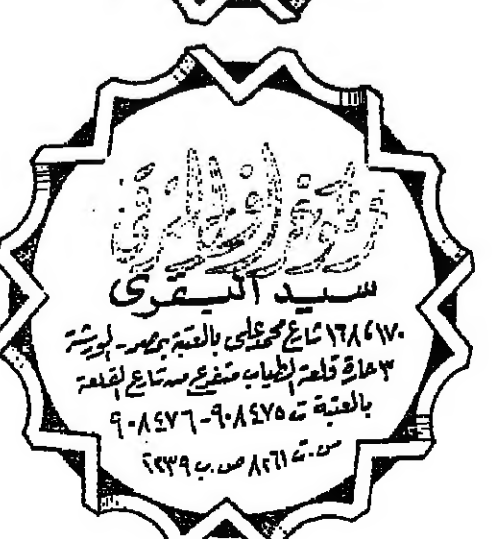 سيد البقرى
١٦٨٤١٧٠ شارع محمد على بالعتبة بمصر - الورشة
٣ حارة قلعة الطياب متفرع من شارع القلعة
بالعتبة ت ٩٠٨٤٧٥ - ٩٠٨٤٧٦
س.ت ٨٢٦١ ص.ب ٢٢٣٩